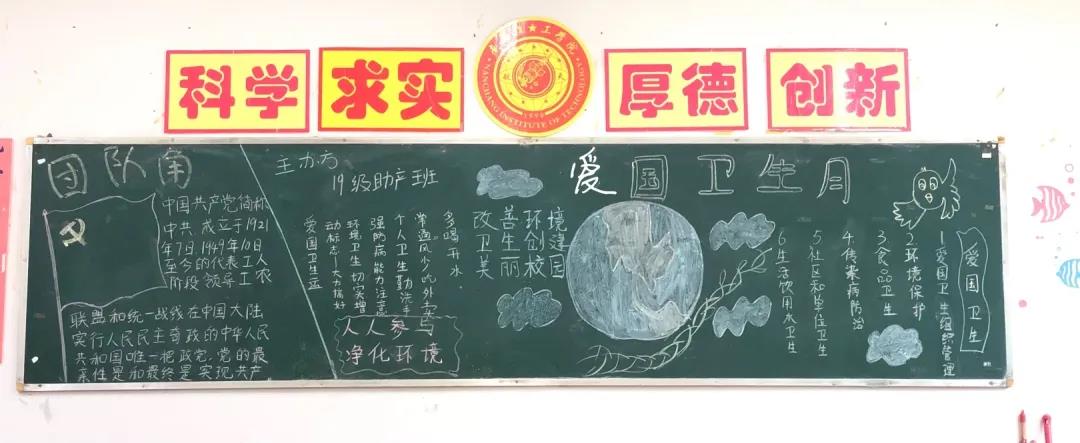 科学
求实
NANCHANG INSTITUTE OF TECHNOLOGY
厚德
创新
团队角
中国共产党简称
中共,成立于1921
年7日1949年10日
至今的代表工人
阶段领导工农
联盟和统一战线在中国大陆
实行人民民主奇政的中华人民
共和国唯一把政党.党的最
亲性是和最终是实现共产
主办方
19级助产班
多喝开水
常通风少此外
个人卫生勤洗手
强防病能力注意
环境卫生切实增
动标志一大力搞好
爱国卫生运
人人参与
净化环境
爱国卫生月
境建园
环创校
善生丽
改卫美
爱国卫生
1爱国卫生组织管理
2环境保护
3食品卫生
4传染病防治
5社区和单位卫生
6生活饮用水卫生